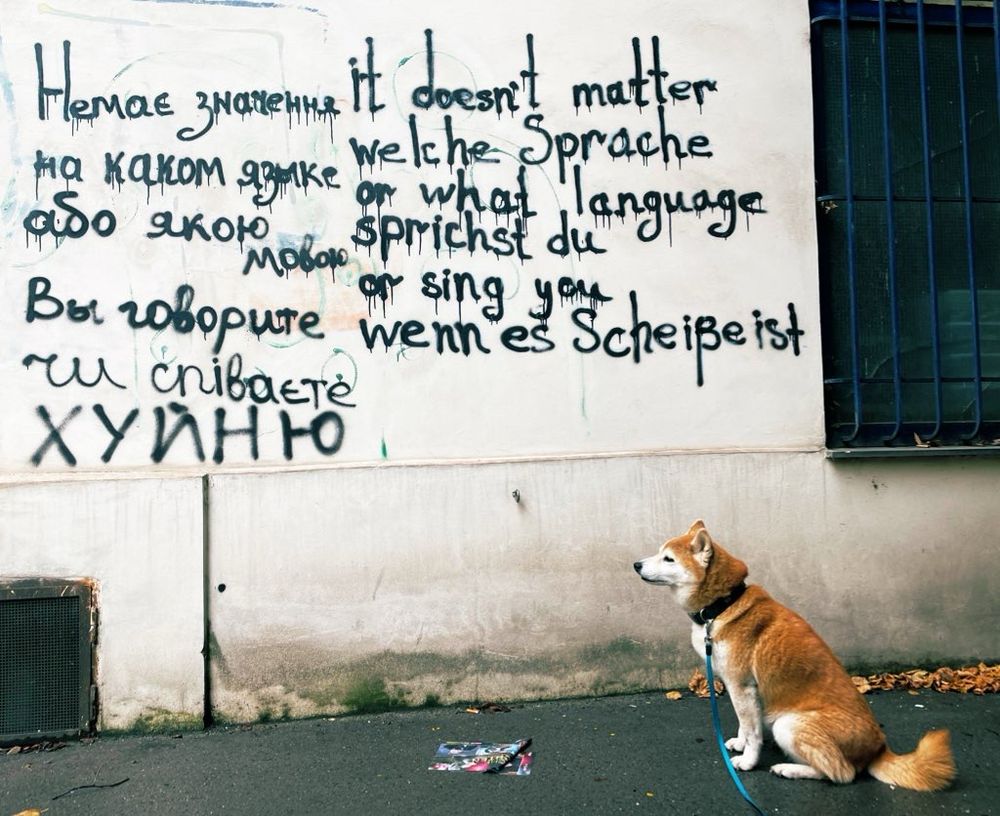 Немає значення
на каком языке
або якою
мовою
Вы говорите
чи співаєте
ХУЙНЮ
it doesn't matter
welche Sprache
or what language
sprichst du
or sing you
wenn es Scheiße ist